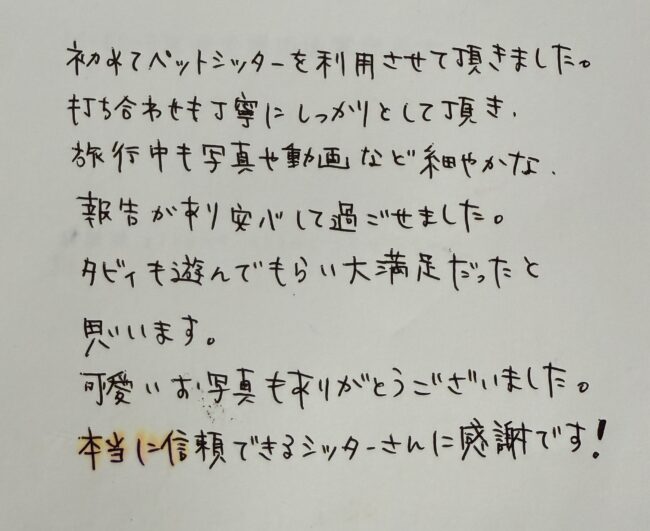 初めてペットシッターを利用させて頂きました。
打ち合わせも丁寧にしっかりとして頂き、
旅行中も写真や動画など細やかな、
報告があり安心して過ごせました。
タビィも遊んでもらい大満足だったと
思います。
可愛いお写真もありがとうございました。
本当に信頼できるシッターさんに感謝です!